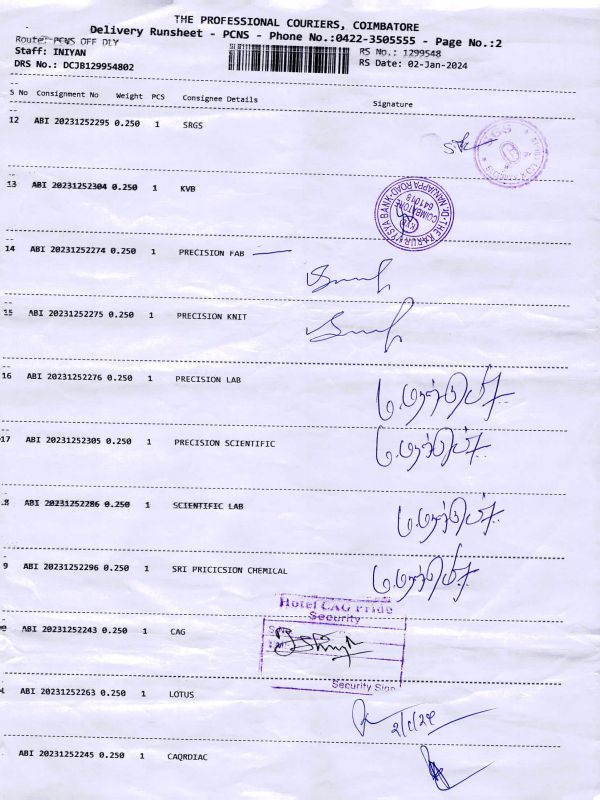 THE PROFESSIONAL COURIERS, COIMBATORE
Delivery Runsheet - PCNS - Phone No.:0422-3505555 - Page No.:2
Route: PCNS OFF DLY
RS No.: 1299548
Staff: INIYAN
RS Date: 02-Jan-2024
DRS No.: DCJB129954802
S No Consignment No Weight PCS Consignee Details Signature
12 ABI 20231252295 0.250 1 SRGS
13 ABI 20231252304 0.250 1 KVB
14 ABI 20231252274 0.250 1 PRECISION FAB
15 ABI 20231252275 0.250 1 PRECISION KNIT
16 ABI 20231252276 0.250 1 PRECISION LAB
17 ABI 20231252305 0.250 1 PRECISION SCIENTIFIC
8 ABI 20231252286 0.250 1 SCIENTIFIC LAB
9 ABI 20231252296 0.250 1 SRI PRICICSION CHEMICAL
Hotel CAG Pride
Security
ABI 20231252243 0.250 1 CAG
Security Sign
ABI 20231252263 0.250 1 LOTUS
2/1/24
ABI 20231252245 0.250 1 CAQRDIAC